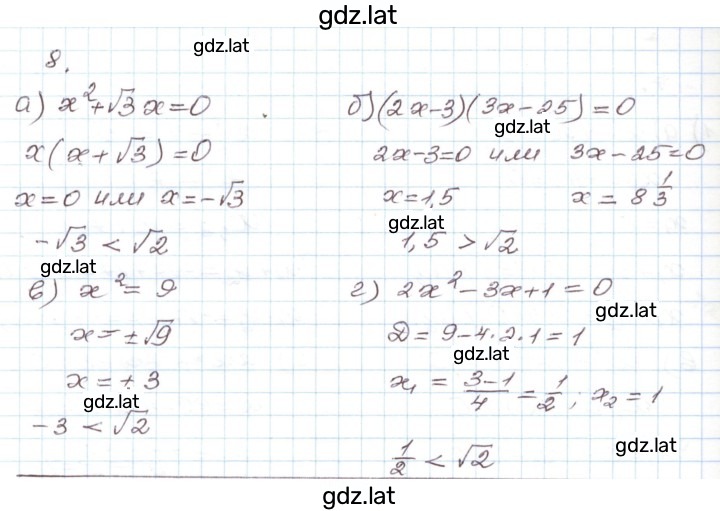 gdz.lat
gdz.lat
8.
а) x² + √3 x = 0
x(x + √3) = 0
x = 0 или x = -√3
-√3 < √2
gdz.lat
б) (2x-3)(3x-25) = 0
gdz.lat
2x-3=0 или 3x-25=0
x = 1,5 x = 8 1/3
gdz.lat
1,5 > √2
в) x² = 9
x = ±√9
x = ±3
gdz.lat
-3 < √2
г) 2x² - 3x + 1 = 0
gdz.lat
D = 9 - 4·2·1 = 1
gdz.lat
x₁ = (3-1)/4 = 1/2; x₂ = 1
gdz.lat
1/2 < √2
gdz.lat